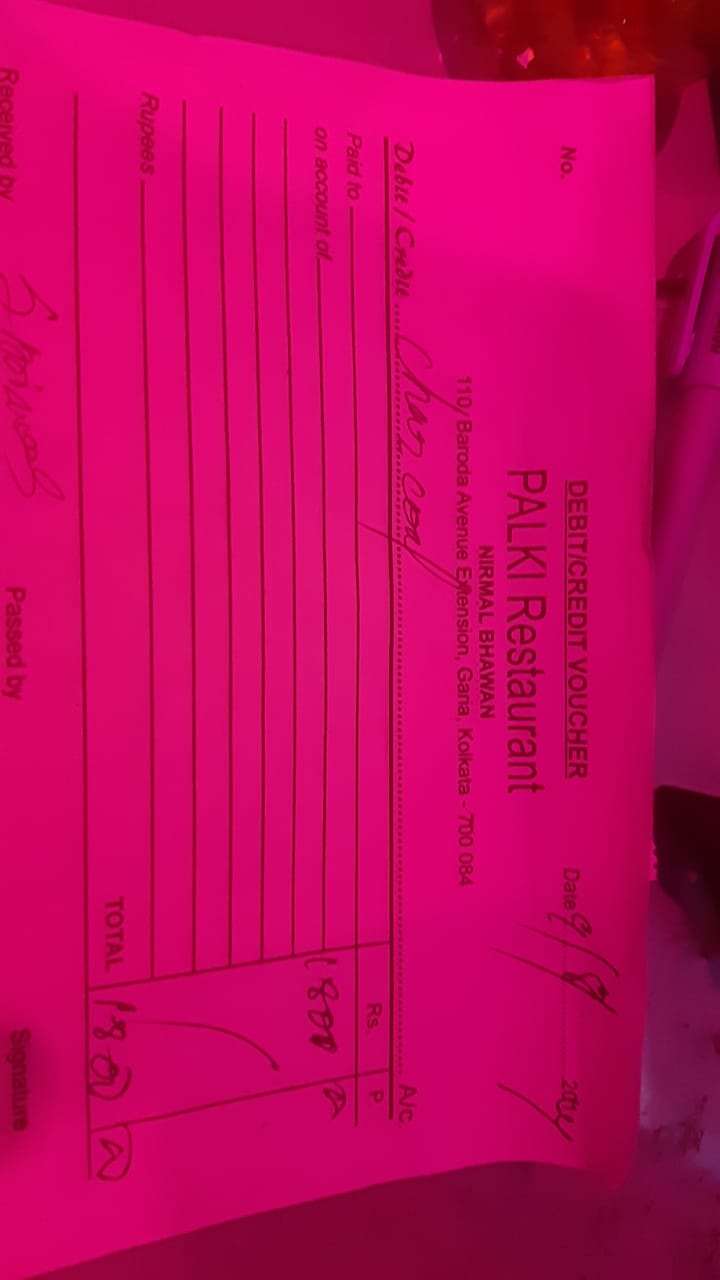 DEBIT/CREDIT VOUCHER
No. Date 9/8/ 2024
PALKI Restaurant
NIRMAL BHAWAN
110/Baroda Avenue Extension, Garia, Kolkata - 700 084
Debit / Credit A/c.
Paid to Rs. P
on account of 1800
Rupees
TOTAL 1800
Received by Passed by Signature